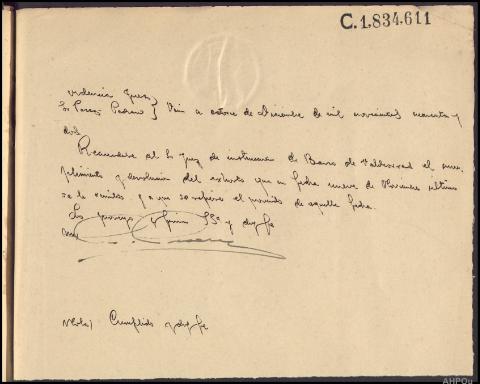 C.1,834,611
Providencia Juez
Sr Pozas Padrino } Vivin a catorce de Diciembre de mil novecientos cuarenta y
dos
Recuerdese al Sr Juez de instruccion de Barco de Valdeorras el cum
plimiento y devolucion del exhorto que en fecha nueve de Noviembre ultimo
se le remitio y a que se refiere el proveido de aquella fecha.
Lo proveyo y firma SSª y doy fe
Nota) Cumplido y doy fe
AHPOu